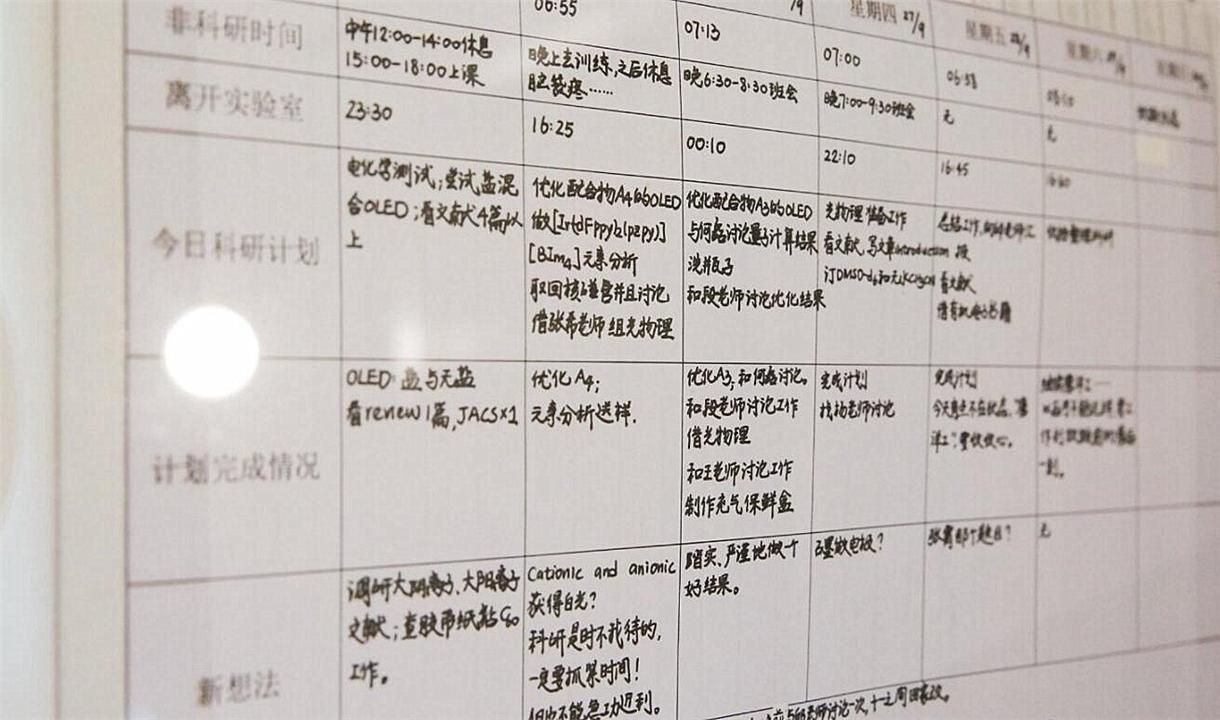 06:55
07:13
星期四 27/9
星期五 28/9
星期六
非科研时间
中午12:00-14:00休息
15:00-18:00上课
晚上去训练,之后休息
脑袋疼……
晚6:30-8:30班会
07:00
晚7:00-9:30班会
06:58
无
无
离开实验室
23:30
16:25
00:10
22:10
16:45
今日科研计划
电化学测试;尝试盐混
合OLED;看文献4篇以
上
优化配合物A4的OLED
做[Ir(dFppy)2(pzpy)]
[BIm4]元素分析
取回核磁管并且讨论
借张希老师组光物理
优化配合物A3的OLED
与何磊讨论量子计算结果
洗瓶子
和段老师讨论优化结果
光物理准备工作
看文献,写文章introduction
订DMSO-d6和
总结工作,
看文献
借有机电子书籍
计划完成情况
OLED:盐与无盐
看renew1篇,JACS×1
优化A4;
元素分析送样.
优化A3,和何磊讨论。
和段老师讨论工作
借光物理
和王老师讨论工作
制作充气保鲜盒
完成计划
找杨老师讨论
完成计划
今天有点不在状态,
新想法
调研大阴离子、大阳离子
文献;查胶带纸粘C60
工作。
Cationic and anionic
获得白光?
科研是时不我待的,
一定要抓紧时间!
但也不能急功近利。
踏实、严谨地做个
好结果。
石墨做电极?
张霄那个题目?
无
老师讨论一次,十一之间回家次。